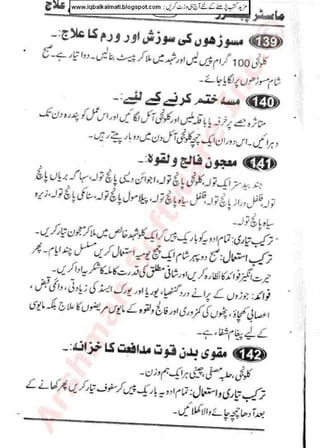 مزید کتب پڑھنے کے لئے آج ہی وزٹ کریں : www.iqbalkalmati.blogspot.com
علاج
139 مسوڑھوں کی سوزش اور ورم کا علاج:۔
کلونجی 100 گرام پیس لیں اور شہد میں ملا کر پیسٹ بنا لیں۔ دوا تیار ہے۔ صبح
شام مسوڑھوں پر لگایا جائے۔
140 مسہ ختم کرنے کے لئے:
متاثرہ حصے پر خرفہ یا باقلہ ملیں اور کلونجی آئل لگائیں اور اس عمل کو پندرہ دن تک
دہرائیں۔ اس دوران ایک چمچ کلونجی آئل دن میں دو بار پیتے رہیں۔
141 معجون فالج و لقوہ:۔
جند بیدستر ایک تولہ، کلونجی پانچ تولہ، اجوائن دیسی پانچ تولہ، سہاگہ بریاں پانچ
تولہ، فلفل دراز پانچ تولہ، فلفل سیاہ پانچ تولہ، پپلا مول پانچ تولہ، سناءکی پانچ تولہ، زیرہ
سیاہ پانچ تولہ
ترکیب تیاری: تمام ادویہ کو باریک پیس کر ایک کلو شہد خالص میں ملا کر معجون تیار کریں۔
ترکیب استعمال: صبح دوپہر شام ایک چمچ یومیہ استعمال کریں مسلسل چند ایام۔ پھر
حیرت انگیز فوائد کا نظارہ کریں اور شافی مطلق کی قدرت کاملہ کا شکریہ ادا کریں۔
فوائد: جوڑوں کے پرانے درد گنٹھیا، یوریا اور یورک ایسڈ کی زیادتی، دائمی قبض،
اعصابی کھچاؤ، پٹھوں کی کمزوری اور فالج و لقوہ کے مایوس مریضوں کا علاج بلکہ مایوسی
کے لیے پیغام شفاء ہے۔
142 مقوی بدن قوت مدافعت کا خزانہ:۔
کلونجی، حلبہ مصفی، چینی ہر ایک ہم وزن۔
ترکیب تیاری و استعمال: تمام ادویہ باریک پیس کر سفوف تیار کریں پھر کھانے کے
بعد آدھا چمچہ چائے والا کھلائیں۔